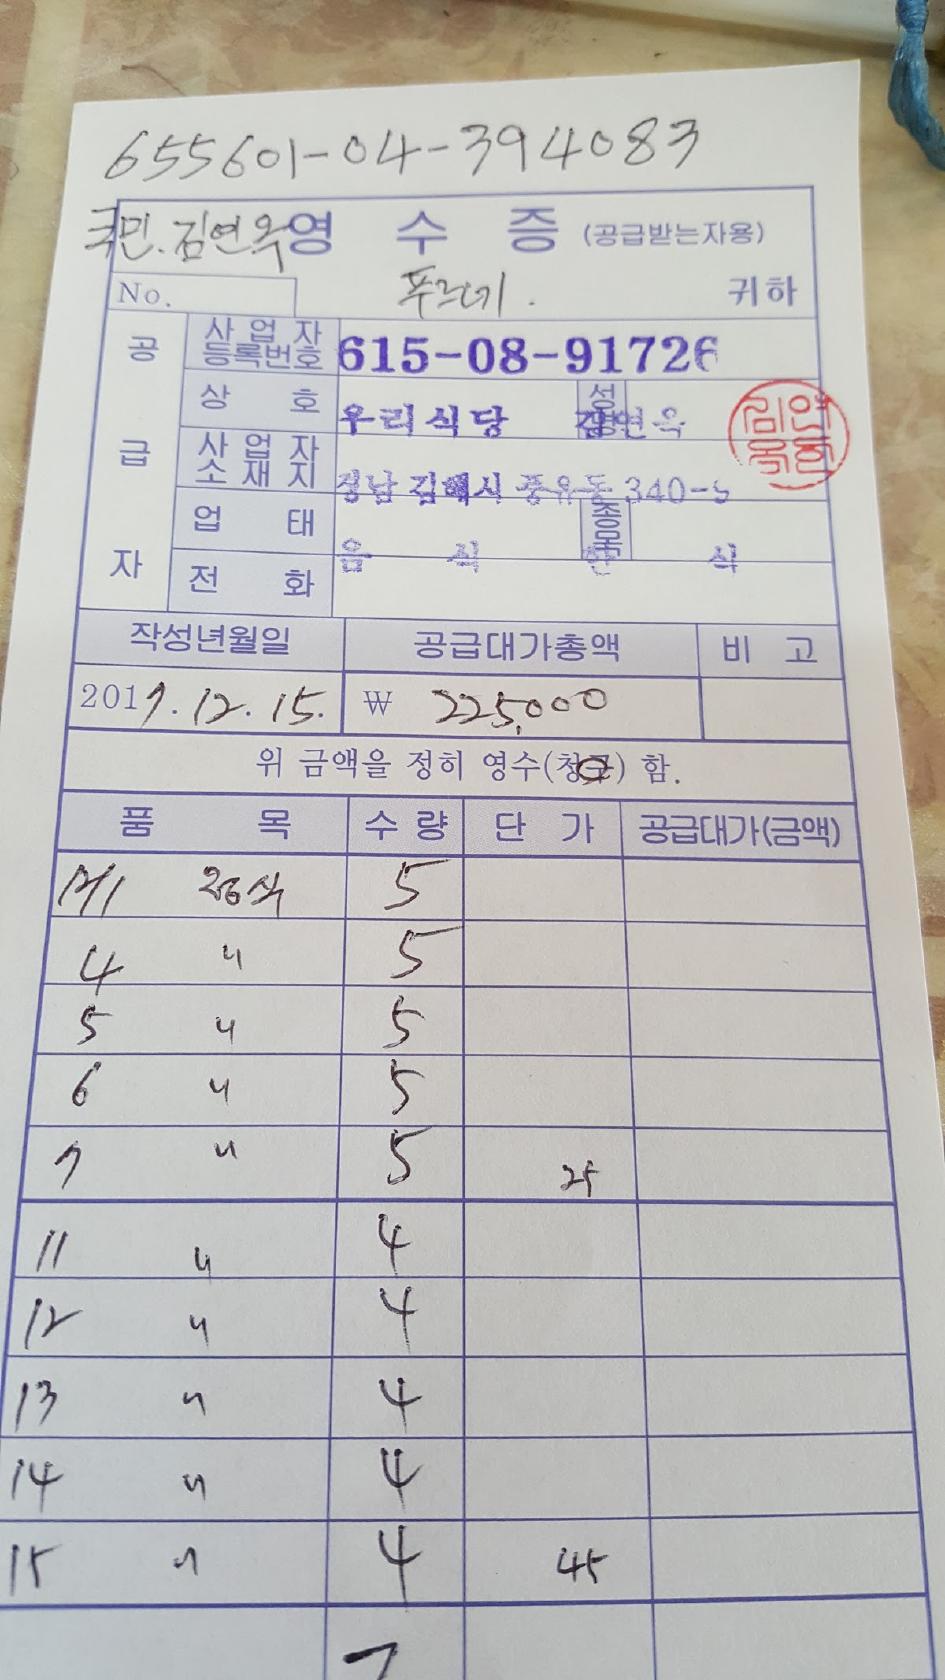 655601-04-394083
국민. 김연옥
영 수 증 (공급받는자용)
No. 푸르네. 귀하
공급자
사업자등록번호 615-08-91726
상 호 우리식당 성명 김연옥
사업자소재지 경남 김해시 풍유동 340-5
업 태 음 식 종목 한 식
전 화
작성년월일 공급대가총액 비 고
2017.12.15. ₩ 225,000
위 금액을 정히 영수(청구) 함.
품 목 수 량 단 가 공급대가(금액)
12/1 중식 5
4 〃 5
5 〃 5
6 〃 5
7 〃 5 25
11 〃 4
12 〃 4
13 〃 4
14 〃 4
15 〃 4 45